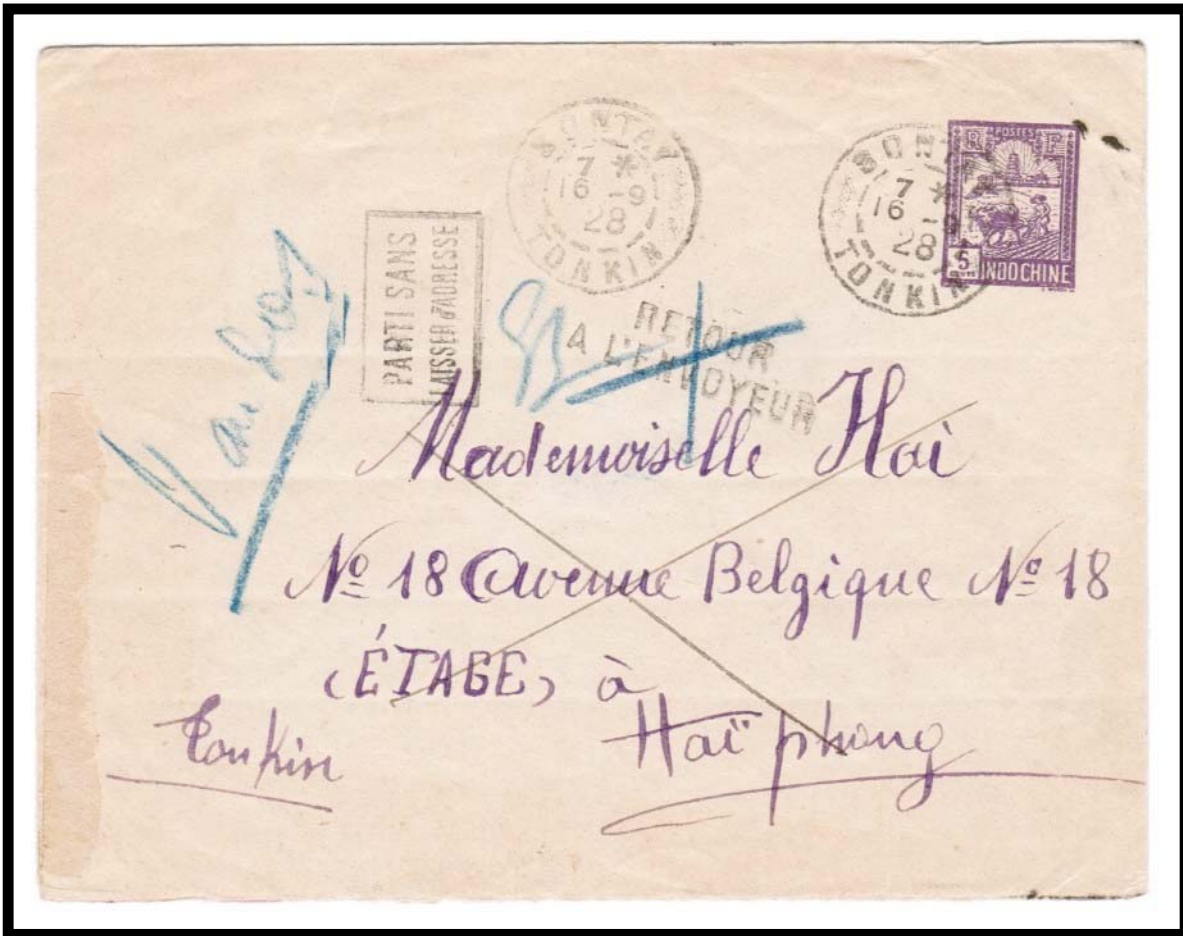 SONTAY
7 *
16 -9
28
TONKIN
SONTAY
7 *
16 -9
28
TONKIN
R POSTES F
5
INDOCHINE
PARTI SANS
LAISSER d'ADRESSE
RETOUR
A L'ENVOYEUR
Mademoiselle Hai
Nº 18 Avenue Belgique Nº 18
(ÉTAGE) à
Tonkin
Haï phong